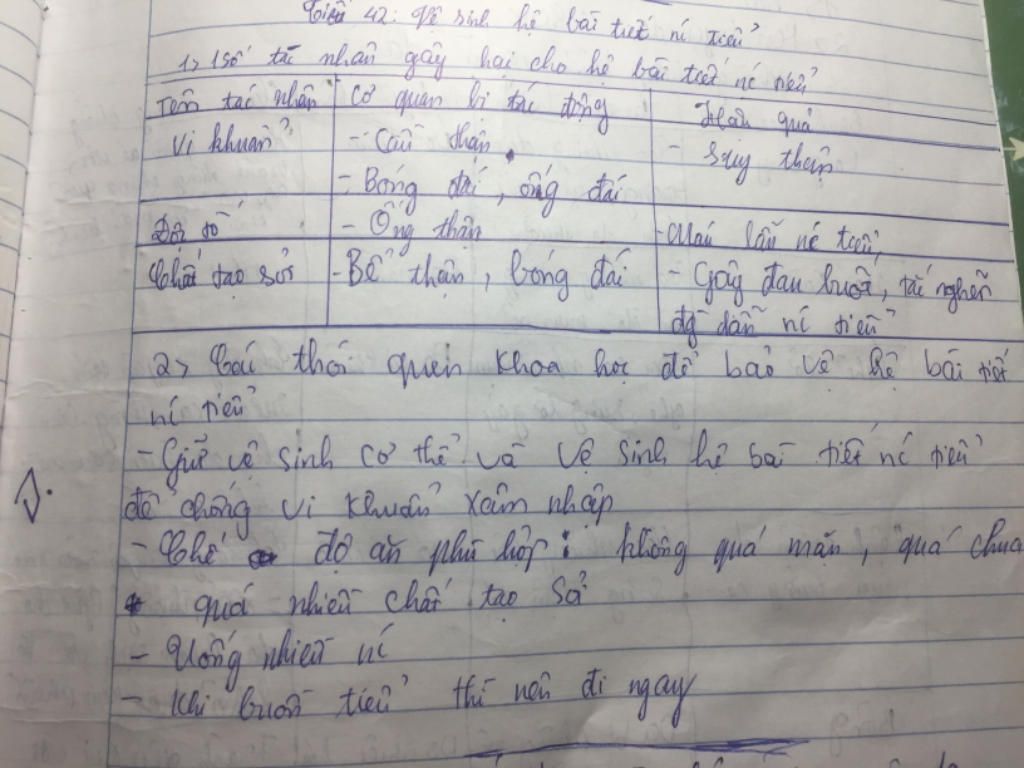 Tiết 42: Vệ sinh hệ bài tiết nc tiểu
1> 1 số tác nhân gây hại cho hệ bài tiết nc tiểu
Tên tác nhân
Cơ quan bị tác động
Hậu quả
Vi khuẩn
- Cầu thận
- Suy thận
- Bóng đái, ống đái
- Ống thận
- Máu lẫn nc tiểu
Chất tạo sỏi
- Bể thận, bóng đái
- Gây đau buốt, tắc nghẽn
dẫn nc tiểu
2> Các thói quen khoa học để bảo vệ hệ bài tiết
nc tiểu
- Giữ vệ sinh cơ thể và vệ sinh hệ bài tiết nc tiểu
để chống vi khuẩn xâm nhập
- Chế độ ăn phù hợp: không quá mặn, quá chua
quá nhiều chất tạo sỏi
- Uống nhiều nc
- Khi buồn tiểu thì nên đi ngay